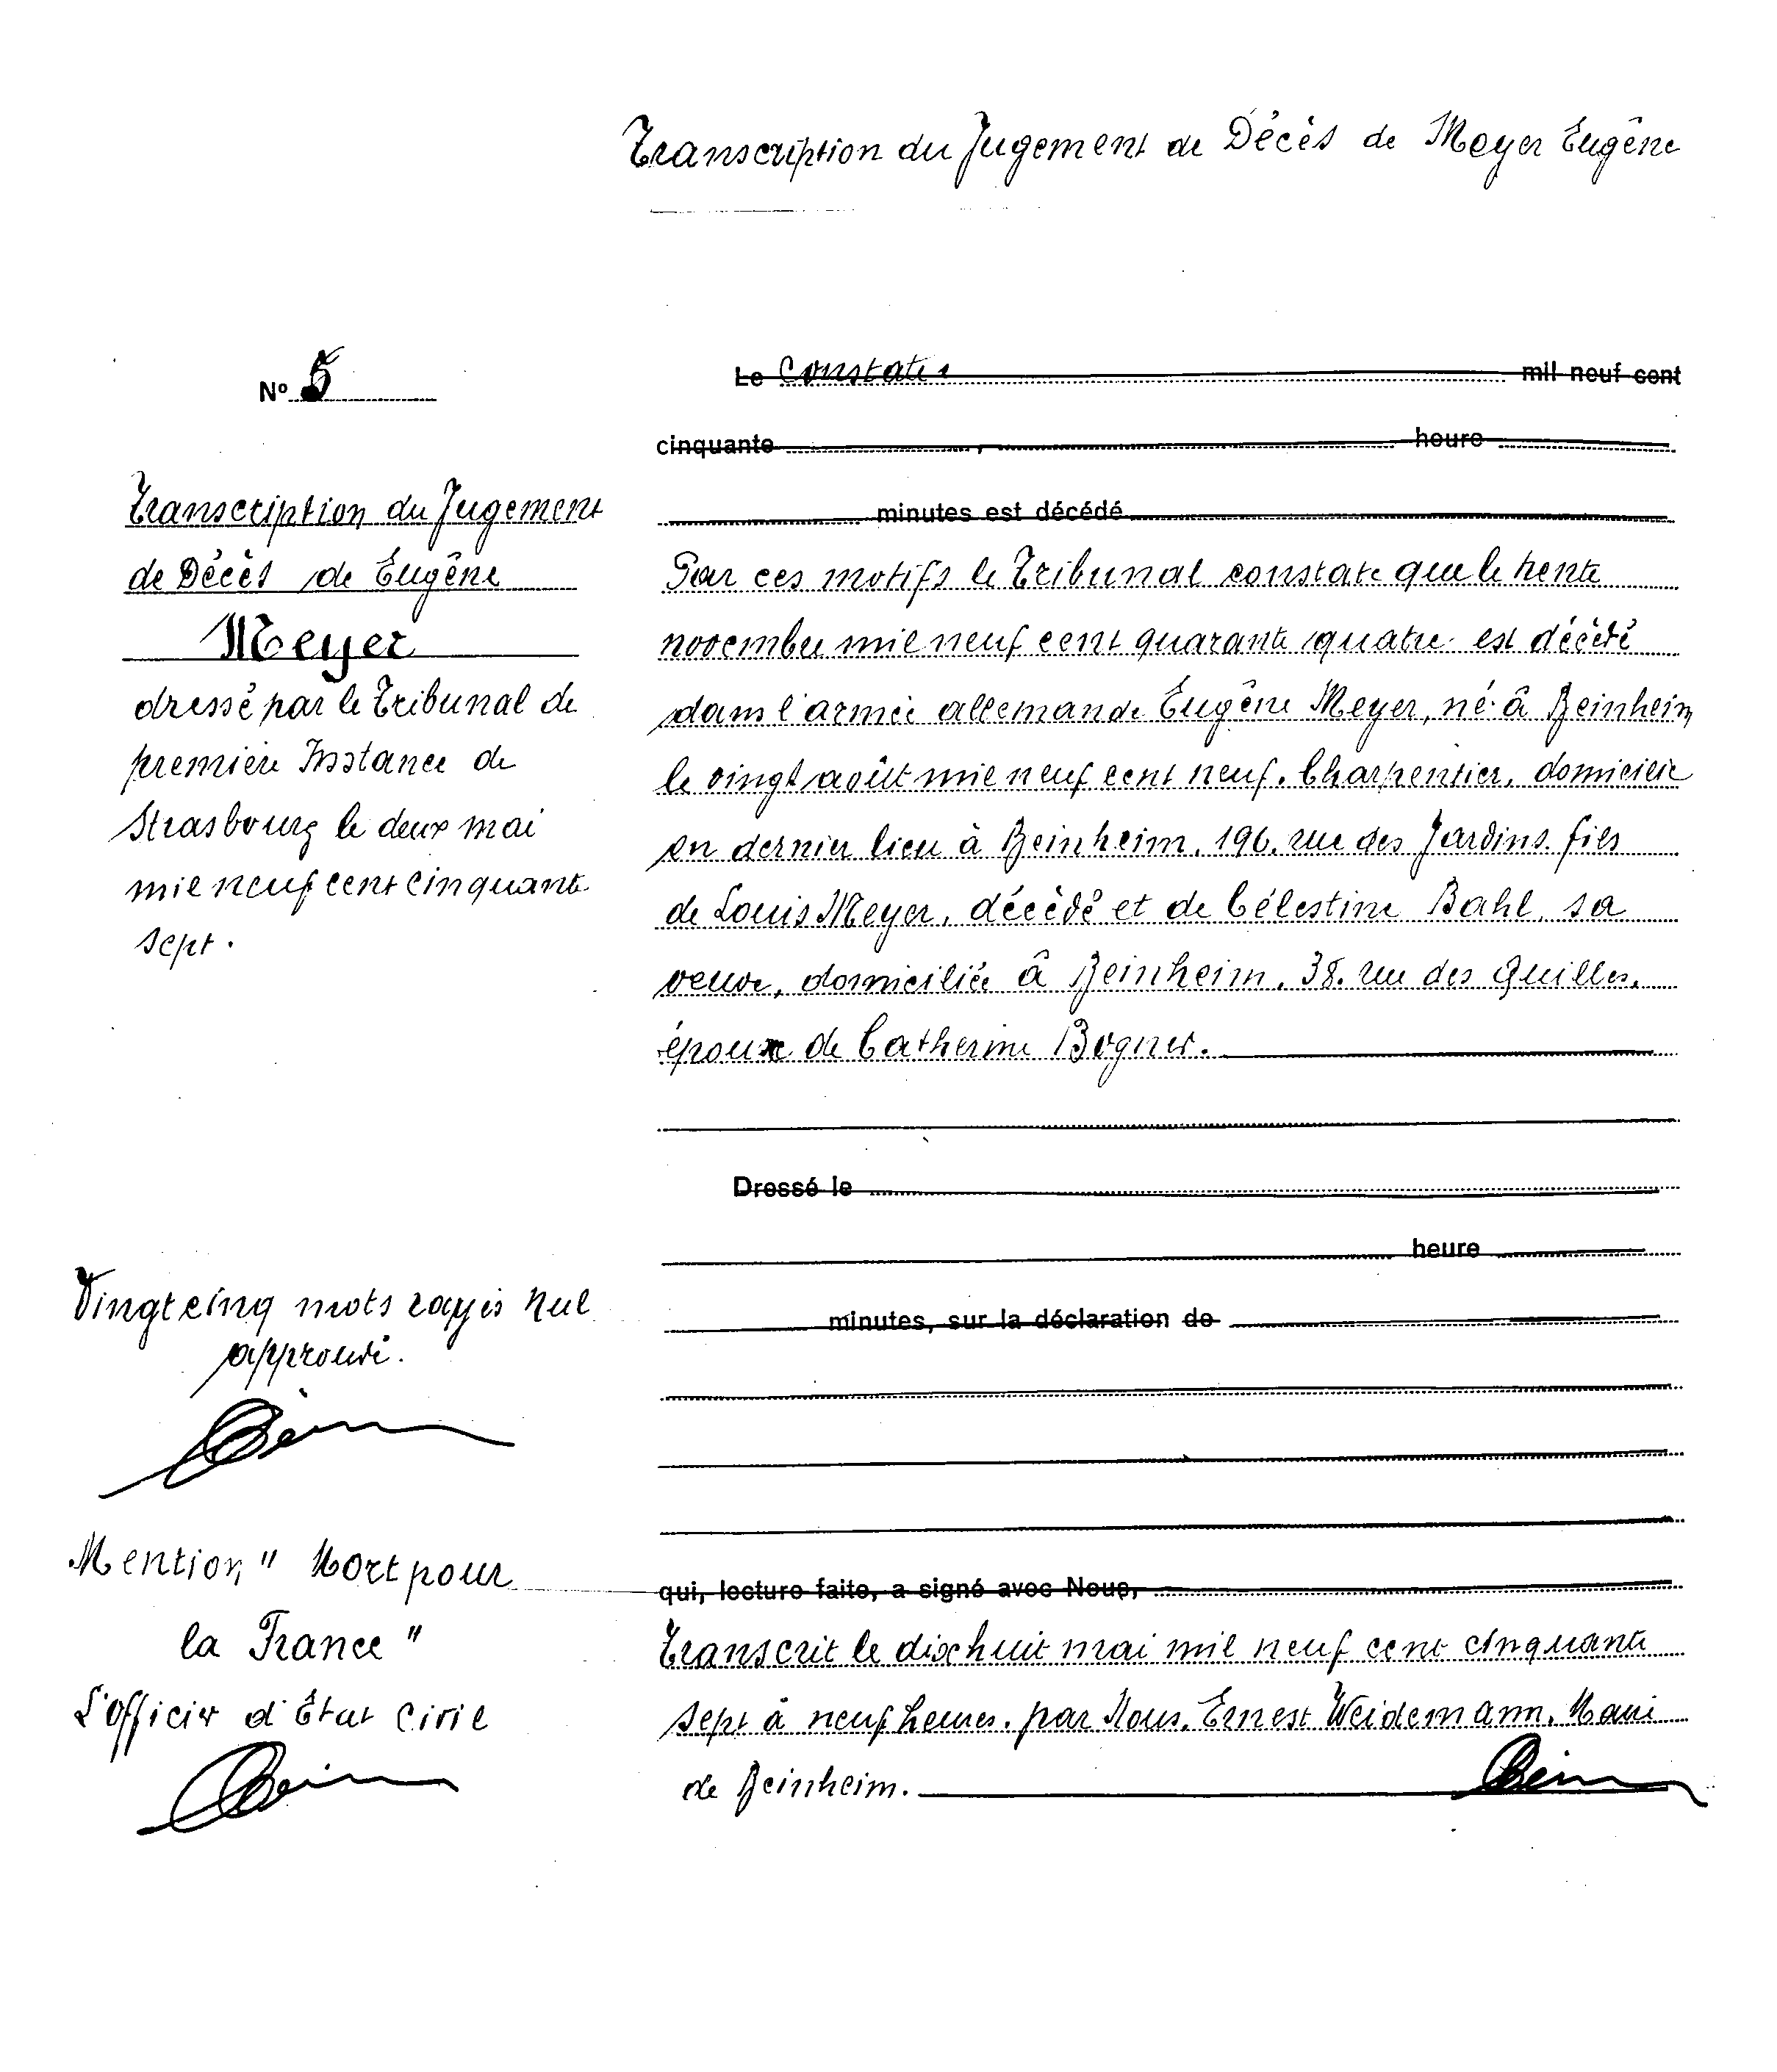 Transcription du Jugement de Décès de Meyer Eugène
N° 5
Transcription du Jugement
de Décès de Eugène
Meyer
dressé par le Tribunal de
première Instance de
Strasbourg le deux mai
mil neuf cent cinquante
sept.
Vingt cinq mots rayés nul
approuvé.
Mention " Mort pour
la France "
L'officier d'État Civil
Le Constate mil neuf cent
cinquante , heure
minutes est décédé
Par ces motifs le Tribunal constate que le trente
novembre mil neuf cent quarante quatre est décédé
dans l'armée allemande Eugène Meyer, né à Beinheim
le vingt août mil neuf cent neuf. Charpentier, domicilié
en dernier lieu à Beinheim, 196, rue des Jardins. fils
de Louis Meyer, décédé et de Célestine Bahl, sa
veuve, domiciliée à Beinheim, 38. rue des Quilles,
époux de Catherine Bogner.
Dressé le
heure
minutes, sur la déclaration de
qui, lecture faite, a signé avec Nous,
Transcrit le dix huit mai mil neuf cent cinquante
sept à neuf heures. par Nous, Ernest Weidemann, Maire
de Beinheim.